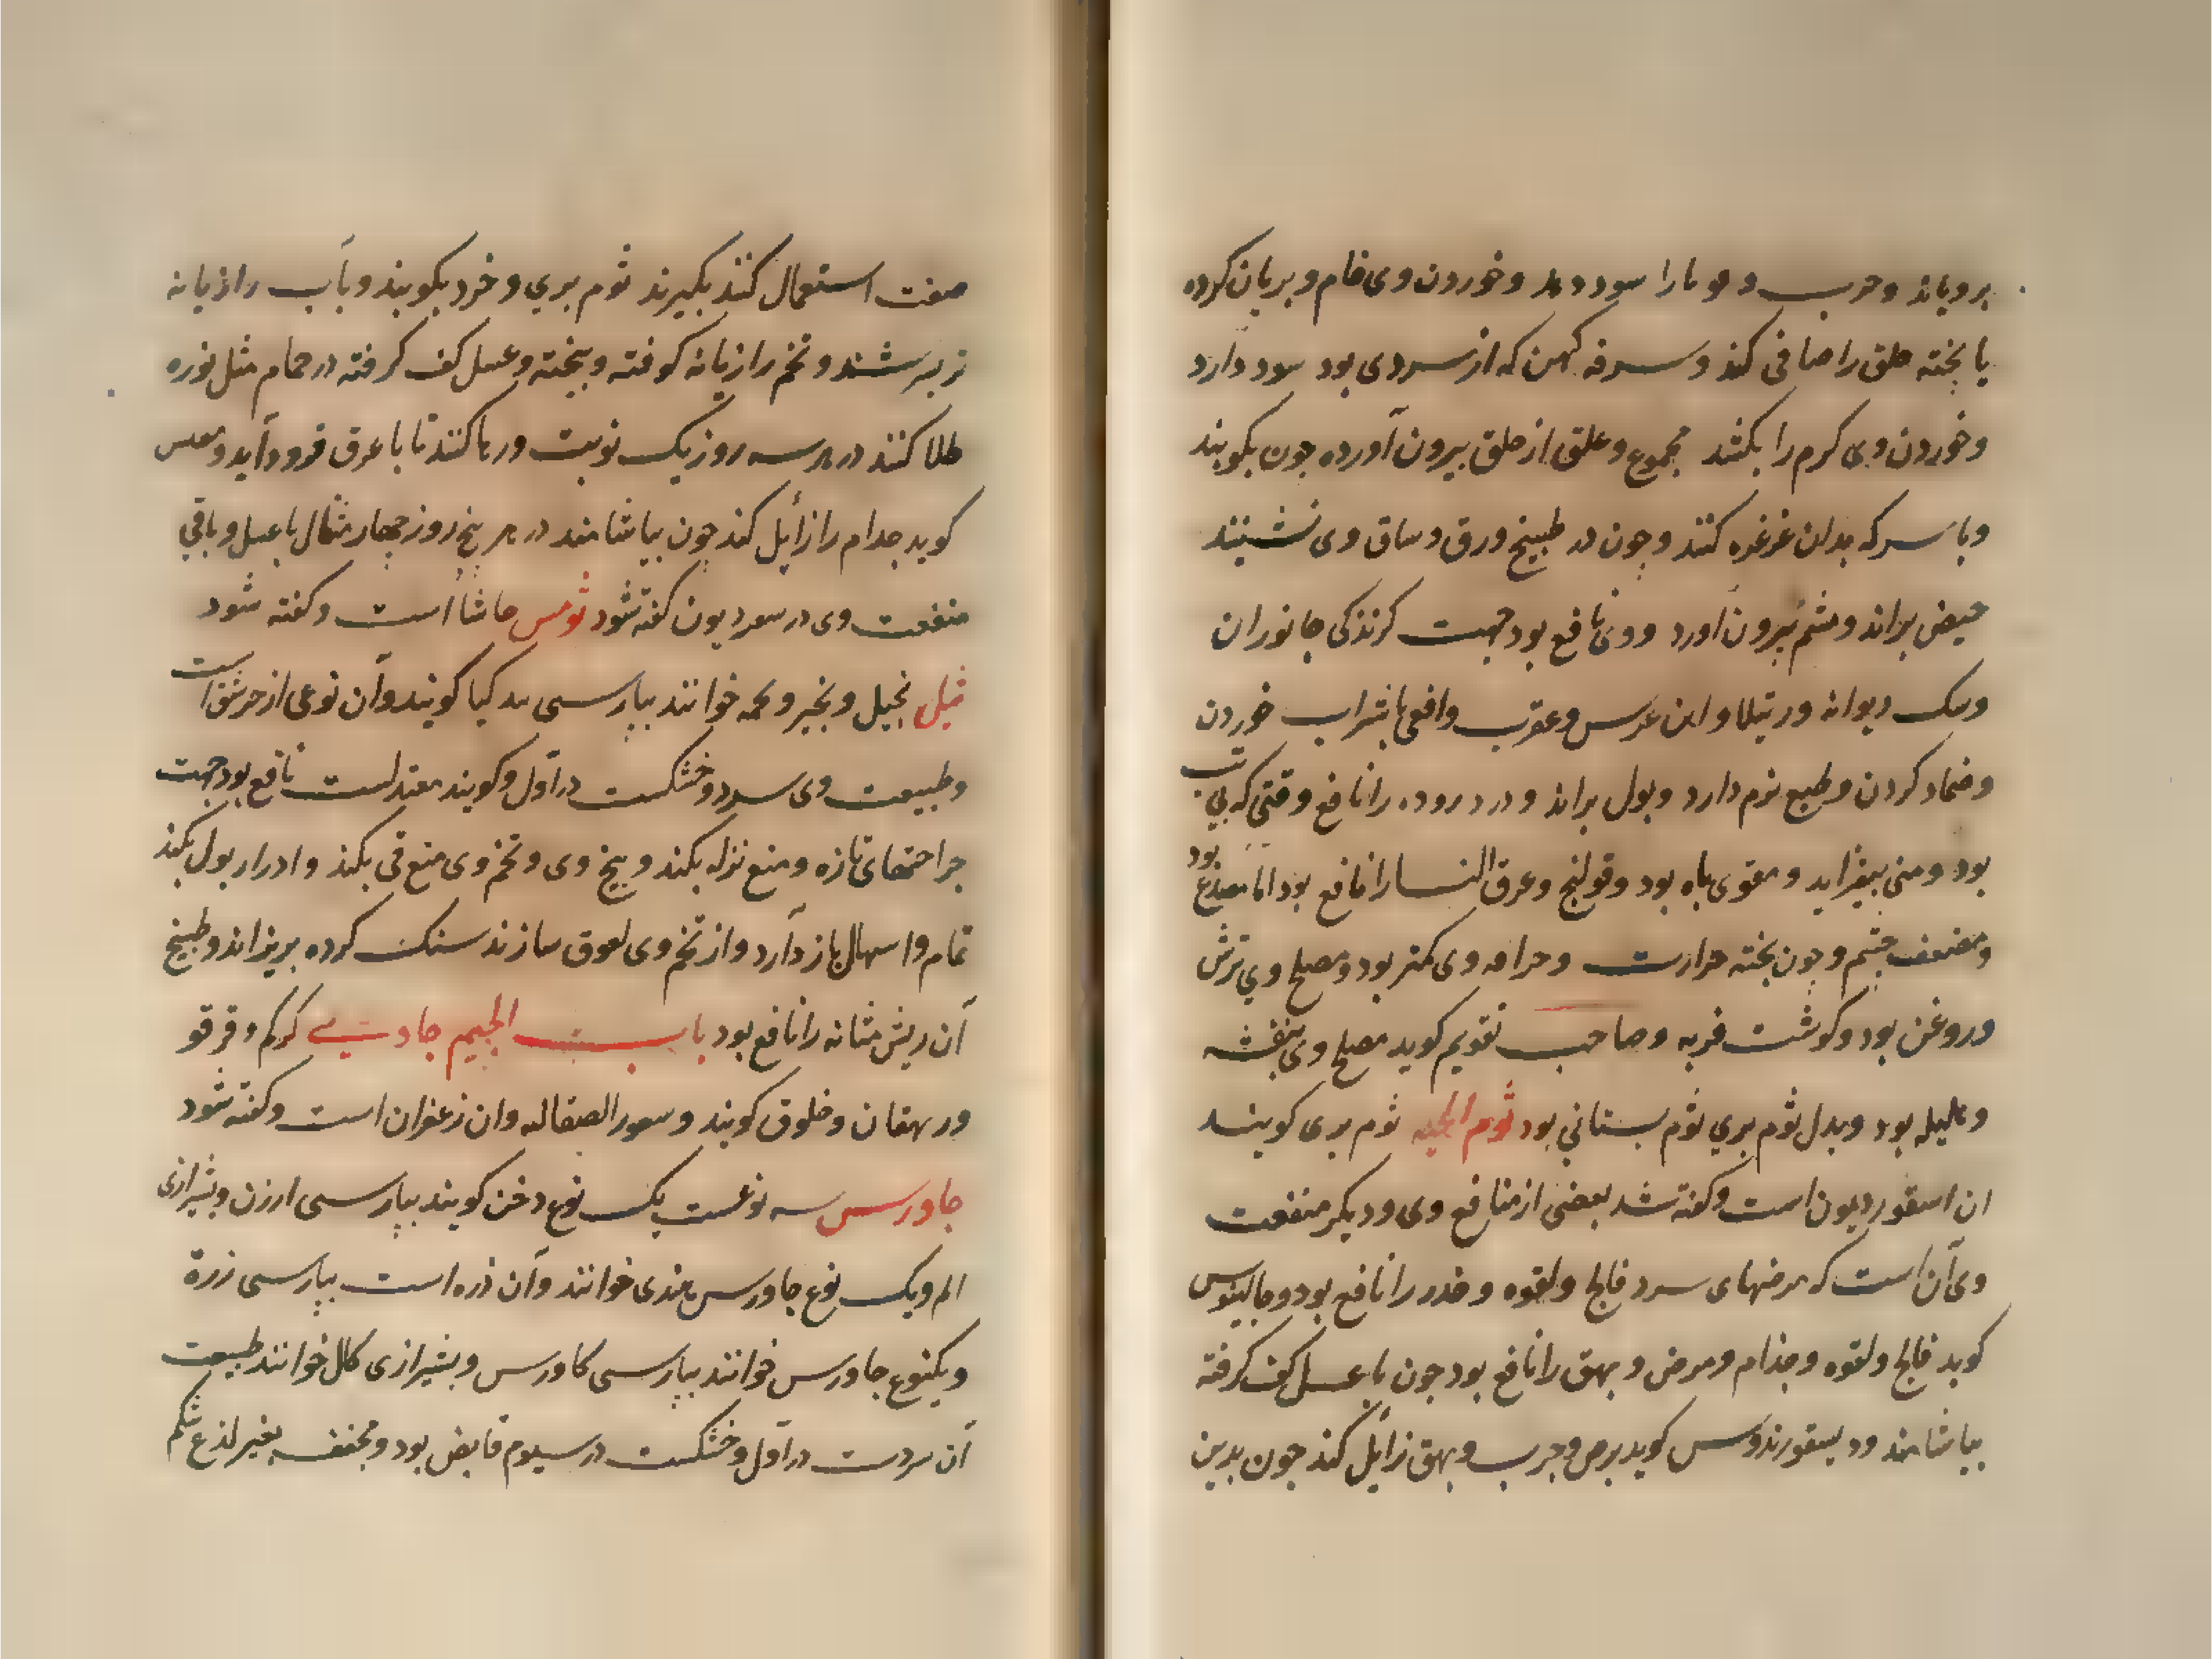 برویاند وجرب و قوبا را سود دهد وخوردن وی خام و بریان کرده
یا پخته حلق را صافی کند و سرفه کهن که از سردی بود سود دارد
وخوردن وی کرم را بکشد مجموع وعلق از حلق بیرون آورده جون بکوبند
وبا سرکه بدان غرغره کنند و جون در طبیخ ورق و ساق وی نشینند
حیض براند ومشیم بیرون آورد ووی نافع بود جهت کزندکی جانوران
وسک دیوانه ورتیلا و ابن عرس وعقرب وافعی با شراب خوردن
وضماد کردن وطبع نرم دارد وبول براند ودرد روده را نافع وقتی که بی تب
بود ومنی بیفزاید و مقوی باه بود وقولنج وعرق النسا را نافع بود اما مصدع بود
ومضعف جشم وجون پخته حرارت وحرافه وی کمتر بود ومصلح وی ترشی
وروغن بود وکوشت فربه وصاحب تقویم کوید مصلح وی بنفشه
وهلیله بود وبدل ثوم بری ثوم بستانی بود ثوم الحیه ثوم بری کویند
ان اسقوردیون است وکفته شد بعضی از منافع وی ودیکر منفعت
وی آن است که مرضهای سرد فالج ولقوه وخدر را نافع بود وجالینوس
کوید فالج ولقوه وجذام ومرض و بهق را نافع بود جون با عسل کف کرفته
بیاشامند ودیسقوریدوس کوید برص وجرب وبهق زایل کند جون بدین
صفت استعمال کنند بکیرند ثوم بری و خرد بکوبند وبآب رازیانه
تر بسرشند وتخم رازیانه کوفته وبیخته وعسل کف کرفته در حمام مثل نوره
طلا کنند در هر سه روز یک نوبت ورها کنند تا با عرق فرود آید
کوید جذام را زایل کند جون بیاشامند در هر پنج روز جهار مثقال با عسل وباقی
منفعت وی در سقوردیون کفته شود ثومس حاشا است وکفته شود
ثیل نجیل ونجیر ونجمه خوانند بپارسی بید کیا کویند وآن نوعی از حرشف است
وطبیعت وی سرد وخشکست در اول وکویند معتدلست نافع بود جهت
جراحتهای تازه ومنع نزله بکند وبیخ وی وتخم وی منع قی بکند وادرار بول بکند
تمام واسهال باز دارد واز تخم وی لعوق سازند سنک کرده بریزاند وطبیخ
آن ریش مثانه را نافع بود باب الجیم جادی کرکم وقرقو
وریهقان وخلوق کویند و الصقالبه وان زعفران است وکفته شود
جاورس سه نوعست یک نوع دخن کویند بپارسی ارزن وبشیرازی
الم ویک نوع جاورس هندی خوانند وآن ذره است بپارسی زرة
ویکنوع جاورس خوانند بپارسی کاورس وبشیرازی کال خوانند طبیعت
آن سردست در اول وخشکست در سیوم قابض بود ومجفف بغیر لذع شکم